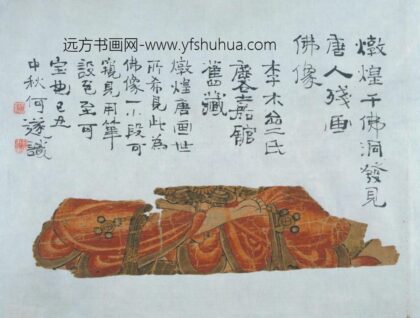 远方书画网·www.yfshuhua.com
燉煌千佛洞發見
唐人殘画
佛像
李木氏
麐嘉館
舊藏
燉煌唐画世
所希見此為
佛像一小段可
窺見用筆
設色至可
宝也己丑
中秋何遂識